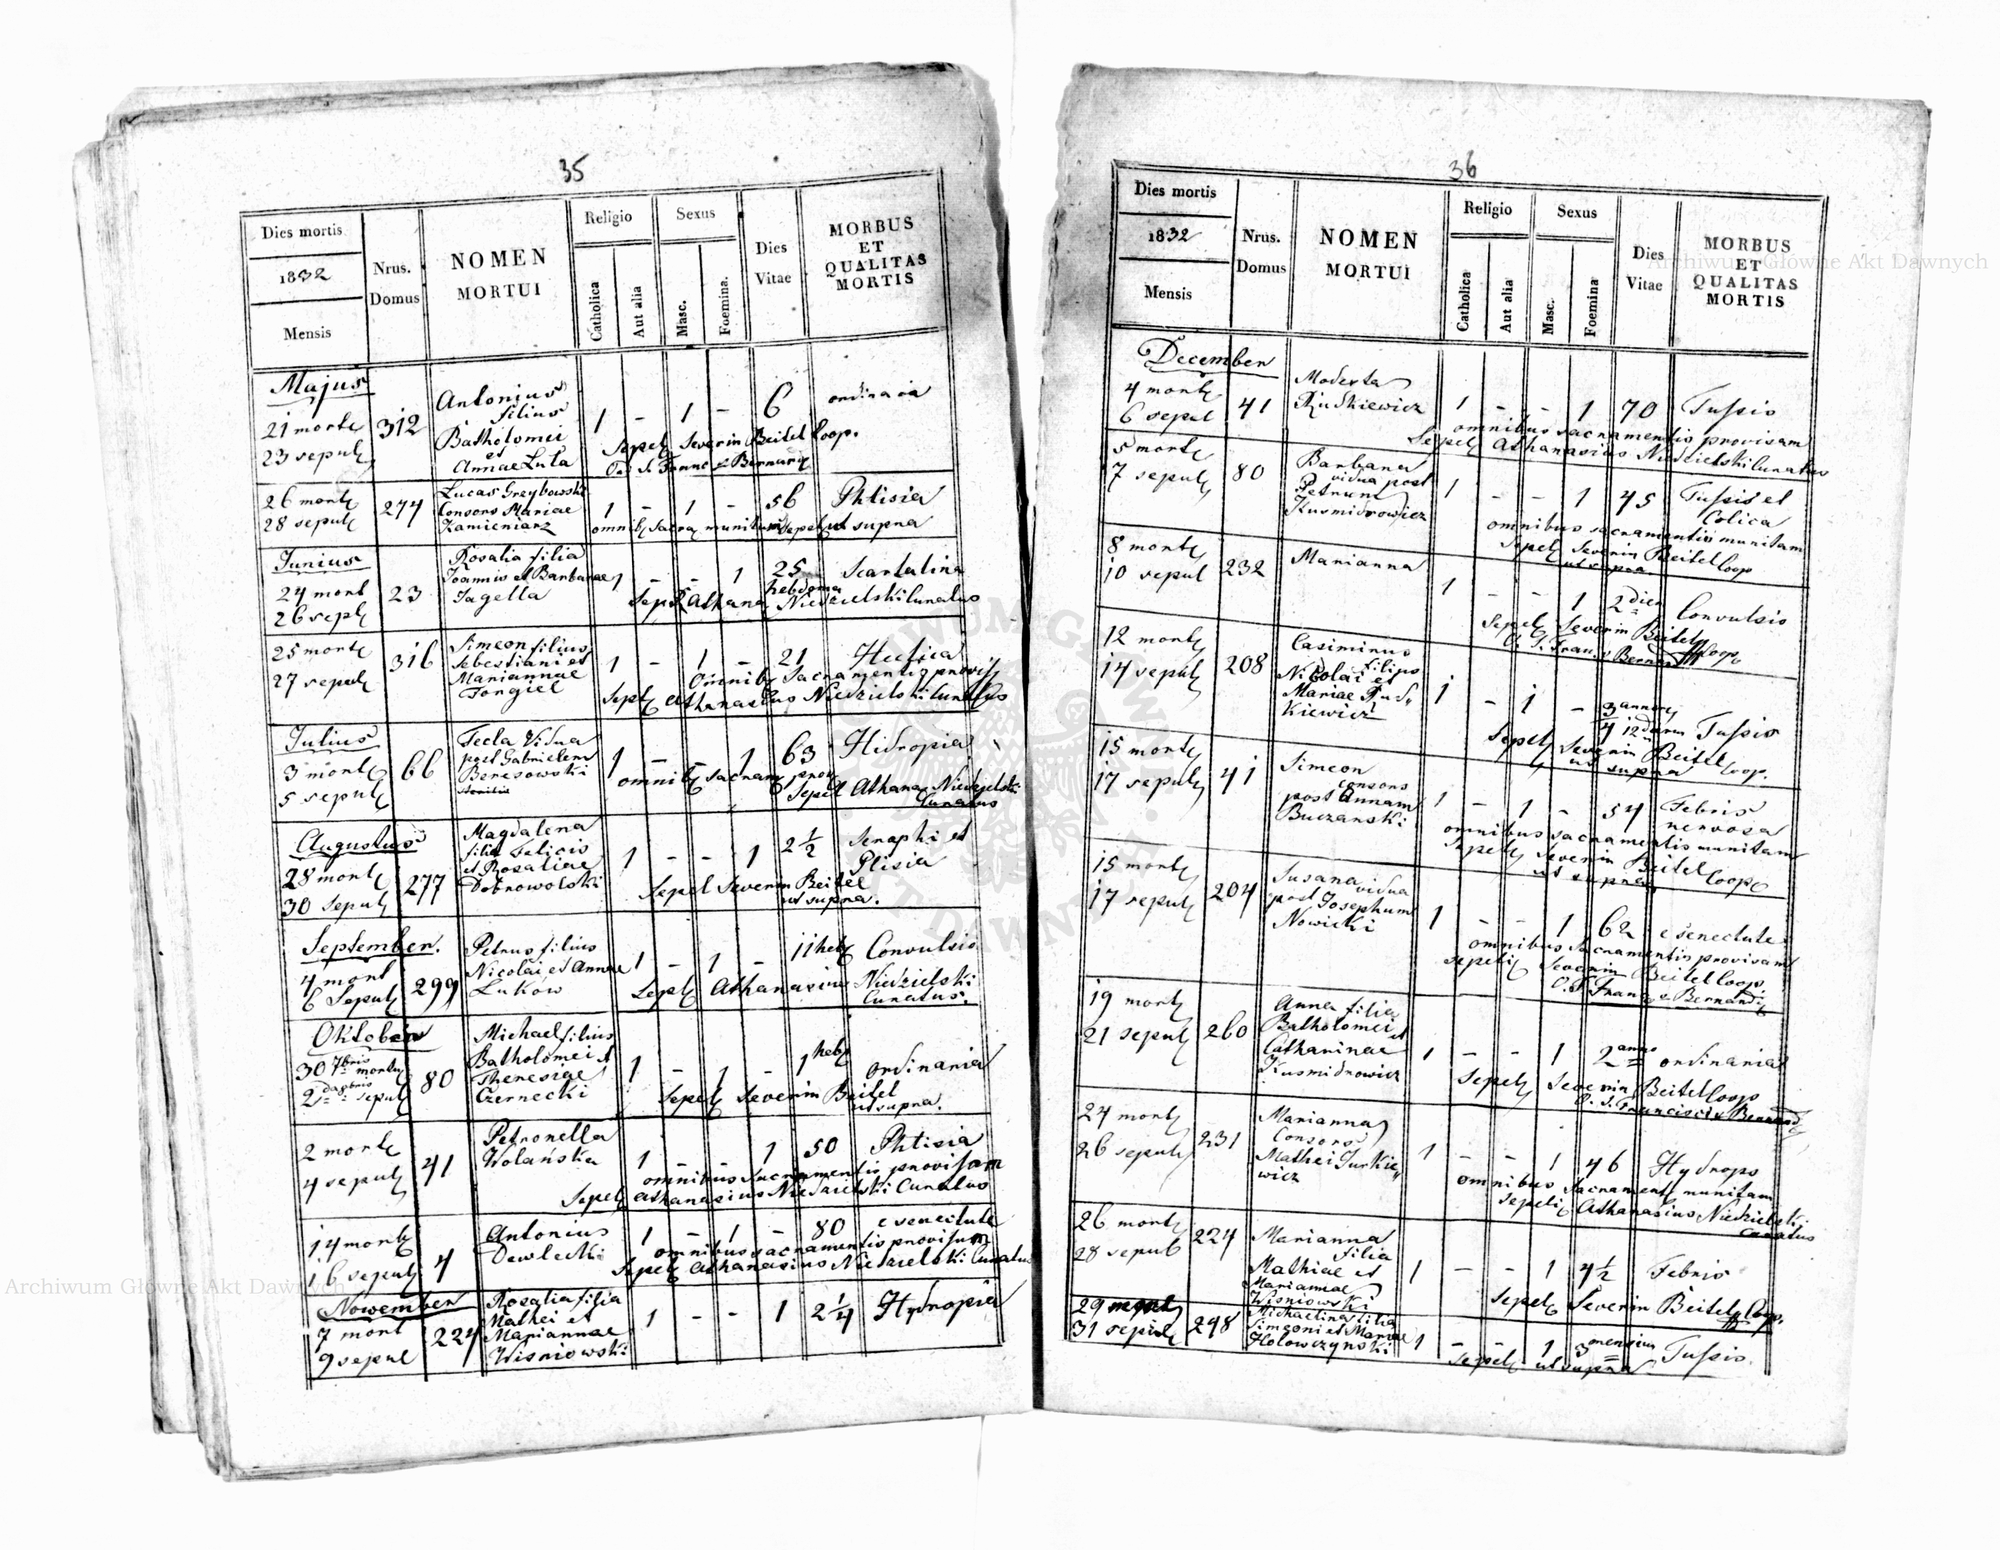 35
Dies mortis
1832
Mensis
Nrus. Domus
NOMEN MORTUI
Religio
Catholica
Aut alia
Sexus
Masc.
Foemina.
Dies Vitae
MORBUS ET QUALITAS MORTIS
Majus
21 morte 312 Antonius 1 - 1 - 6 ordinaria
23 sepult filius
Batholomei
et
Annae Luta
Sepel Severin Beitel Coop.
26 morte 274 Lucas Greybowski 1 - 1 - 56 Phtisia
28 sepult Consors Mariae
Kamieniarz
ut supra
Junius
24 mort 23 Rosalia filia 1 - - 1 25 Scarlatina
26 sept Joannis et Barbarae hebdoma
Jagella
Sept Athana Niedzielski Curatus
25 morte 316 Simeon filius 1 - 1 - 21 Hectica
27 sepult Sebestiani et
Mariannae
Torgiel
Sept Athanasius Niedzielski Curatus
Julius
3 morte 66 Tecla Vidua 1 - - 1 63 Hidropia
5 sepult post Gabrielem
Beresowski
Sepel Athana Niedzielski
Curatus
Augustus
28 morte 277 Magdalena 1 - - 1 2½
30 Sepult filia Felicis
et Rosaliae
Dobrowolski
Sepel Severin Beitel
ut supra.
September.
4 mort 299 Petrus filius 1 - 1 - 11 heb Convulsio
6 Sepult Nicolai et Annae
Lukow
Sept Athanasius Niedzielski
Curatus.
Oktober
30 7bris morte 80 Michael filius 1 - 1 - 1 heb ordinaria
Batholomei et
Theresiae
Czernecki
Sepel Severin Beitel
ut supra.
2 morte 41 Petronella 1 - - 1 50 Phtisia
4 sepult Wolańska
omnibus Sacramentis provisam
Sepel Athanasius Niedzielski Curatus
14 morte 4 Antonius 1 - 1 - 80 e senectute
16 sepult Dewlecki
omnibus sacramentis provisum
Sepel Athanasius Niedzielski Curatus
Nowember
7 mort 224 Rosalia filia 1 - - 1 2¼ Hydropia
9 sepul Mathei et
Mariannae
Wisniowski
36
Dies mortis
1832
Mensis
Nrus. Domus
NOMEN MORTUI
Religio
Catholica
Aut alia
Sexus
Masc.
Foemina
Dies Vitae
MORBUS ET QUALITAS MORTIS
December
4 morte 41 Modesta 1 - - 1 70 Tussis
6 sepul Rudkiewicz
omnibus sacramentis provisam
Sepel Athanasius Niedzielski Curatus
5 morte 80 Barbara 1 - - 1 45 Tussis et
7 sepult vidua post Colica
Petrum
Kusmidrowicz
omnibus sacramentis munitam
Sepel Severin Beitel Coop
ut supra
8 morte 232 Marianna 1 - - 1 2 dies Convulsio
10 sepul
Sepel Severin Beitel Coop
12 morte 208 Casimirus 1 - 1 - Tussis
14 sepult filius
Nicolai et
Mariae Rud-
kiewicz
Sepel Severin Beitel Coop.
ut supra
15 morte 41 Simeon 1 - 1 - 54 Febris
17 sepult consors nervosa
post Annam
Buczanski
omnibus sacramentis munitam
Sepel Severin Beitel Coop
ut supra
15 morte 204 Susana 1 - - 1 62 e senectute
17 sepult vidua
post Josephum
Nowicki
omnibus Sacramentis provisam
Sepel Severin Beitel Coop.
19 morte 260 Anna filia 1 - - 1 2 ordinaria
21 sepult Batholomei et
Catharinae
Kusmidrowicz
Sepel Severin Beitel Coop
24 morte 231 Marianna 1 - - 1 46 Hydrops
26 sepult Consors
Mathei Jurkie-
wicz
omnibus Sacrament munitam
Sepel Athanasius Niedzielski
Curatus
26 morte 224 Marianna 1 - - 1 4½ Febris
28 sepult filia
Mathiae et
Mariannae
Wisniowski
Sepel Severin Beitel Coop.
29 morte 298 Michaelina filia 1 - - 1 3 mensium Tussis.
31 sepult Simeoni et Mariae
Holowczynski
Sepel ut supra
Archiwum Główne Akt Dawnych
Archiwum Główne Akt Dawnych